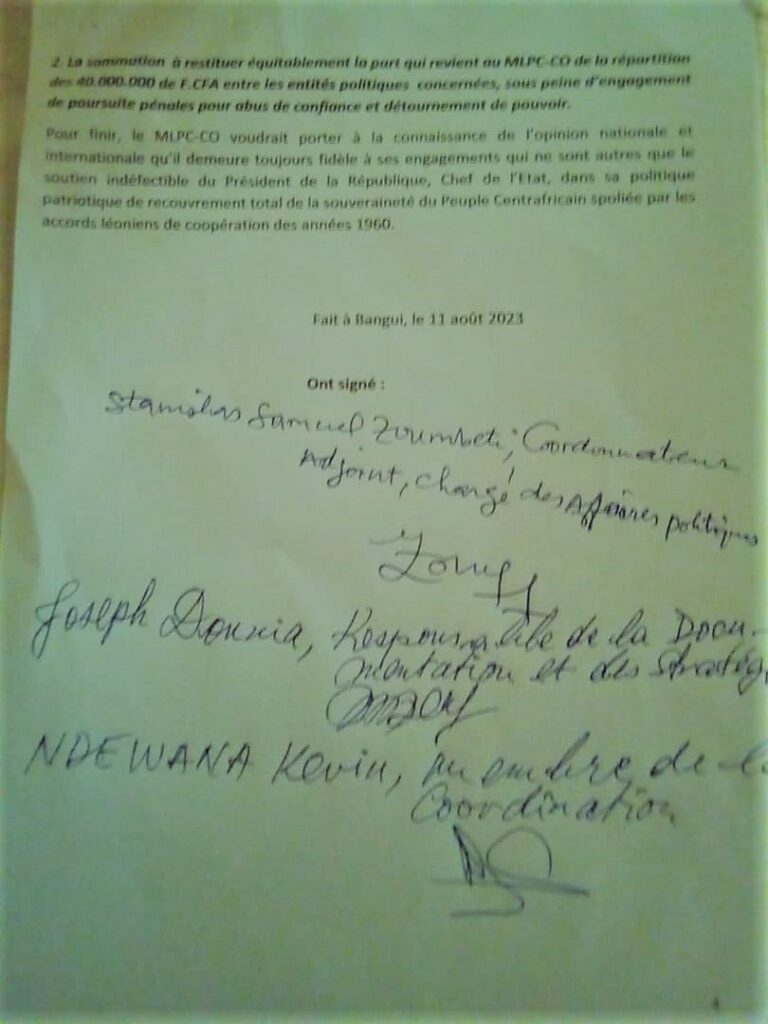 2. La sommation à restituer équitablement la part qui revient au MLPC-CO de la répartition
des 40.000.000 de F.CFA entre les entités politiques concernées, sous peine d'engagement
de poursuite pénales pour abus de confiance et détournement de pouvoir.
Pour finir, le MLPC-CO voudrait porter à la connaissance de l'opinion nationale et
internationale qu'il demeure toujours fidèle à ses engagements qui ne sont autres que le
soutien indéfectible du Président de la République, Chef de l'Etat, dans sa politique
patriotique de recouvrement total de la souveraineté du Peuple Centrafricain spoliée par les
accords léoniens de coopération des années 1960.
Fait à Bangui, le 11 août 2023
Ont signé :
Stanislas Samuel Zoumbeti, Coordonnateur
Adjoint, chargé des Affaires politiques
Joseph Dounia, Responsable de la Docu-
mentation et des Stratég
NDEWANA Kevin, membre de l
Coordination
4